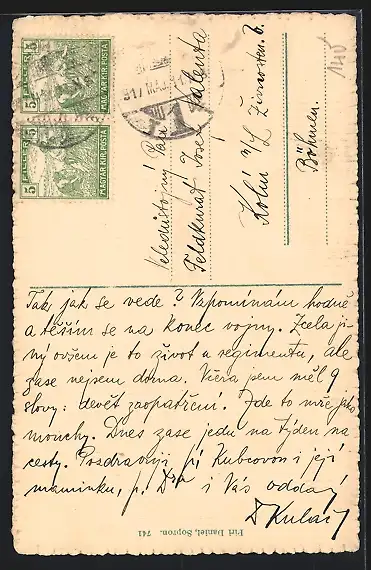 5 FILLÉR 5
MAGYAR KIR. POSTA
5 FILLÉR 5
MAGYAR KIR. POSTA
Veledůstojný Pán
Feldkurát Josef Valenta
Kolín n/L
Böhmen.
Tak jak se vede? Vzpomínám hodně
a těším se na konec vojny. Zcela ji-
ný ovšem je to život u regimentu, ale
zase nejsem doma. Včera jsem měl 9
slovy: devět zaopatření. Jde to mře jako
mouchy. Dnes zase jedu na týden na
cesty. Pozdravuji pí Kubcovou i její
maminku, p. Dra i Vás oddaný
Piri Daniel, Sopron. 741